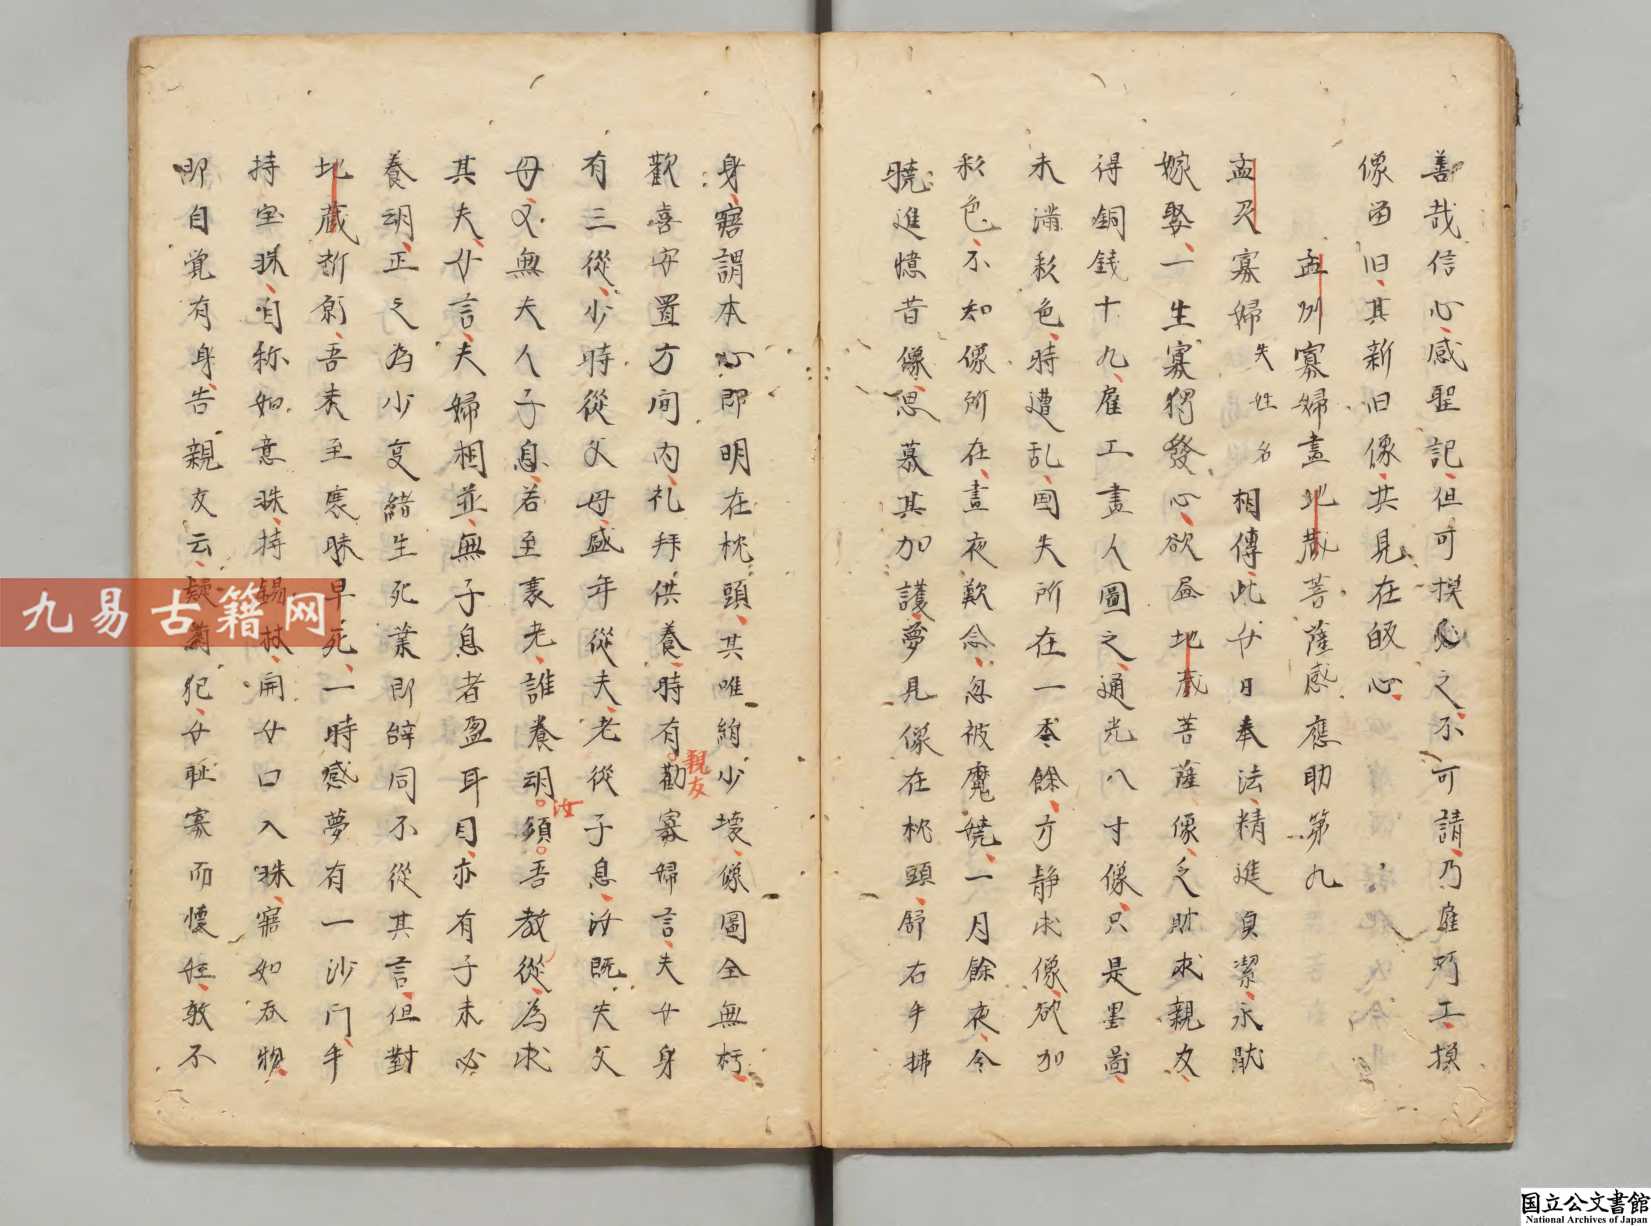 善哉信心感聖記但可摸之不可請乃雇巧工摸
像留旧其新旧像共見在皈心
孟州寡婦畫地蔵菩薩感應助第九
孟州寡婦失姓名相傳此女日奉法精進貞潔永厭
嫁娶一生寡獨發心欲畫地蔵菩薩像乏財求親友
得銅錢十九雇工畫人圖之通光八寸像只是墨畫
未滿彩色時遭乱国失所在一季餘方静求像欲加
彩色不知像所在晝夜歎念忽被魔嬈一月餘夜令
曉進憶昔像思慕其加護夢見像在枕頭舒右手拂
身寤謂本心即明在枕頭其唯絹少壊像圖全無朽
歡喜安置方間内礼拜供養時有親友勸寡婦言夫女身
有三從少時從父母盛年從夫老從子息汝既失父
母又無夫人子息若至衰老誰養汝須吾教從為求
其夫女言夫婦相並無子息者盈耳目亦有子未必
養正之為少宴緒生死業即辞同不從其言但對
地蔵新影吾未至衰暮早死一時感夢有一沙門手
持宝珠自称如意珠持錫杖開女口入珠寤如吞物
即自覚有身告親友云疑犯女耻寡而懐妊敢不
九易古籍网
国立公文書館
National Archives of Japan